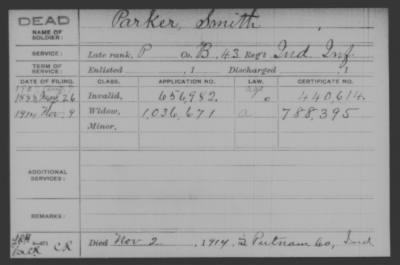 DEAD
NAME OF SOLDIER:
Parker, Smith
SERVICE:
Late rank, P Co. B, 43 Reg't Ind Inf
TERM OF SERVICE:
Enlisted , 1 Discharged , 1
DATE OF FILING. CLASS. APPLICATION NO. LAW. CERTIFICATE NO.
26 Invalid, 656,982. 440,614.
1914 Nov. 9 Widow, 1,036,671 a 788,395
Minor,
ADDITIONAL SERVICES:
REMARKS:
CR Died Nov 2 , 1914, Putnam Co, Ind